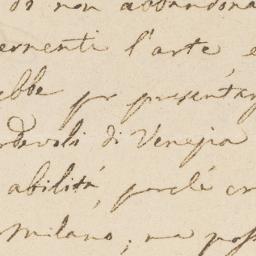 di non abbandona
ernenti l'arte e
ebbe pr presentar
devoli di Venezia
abilità, perchè
Milano; ma poss